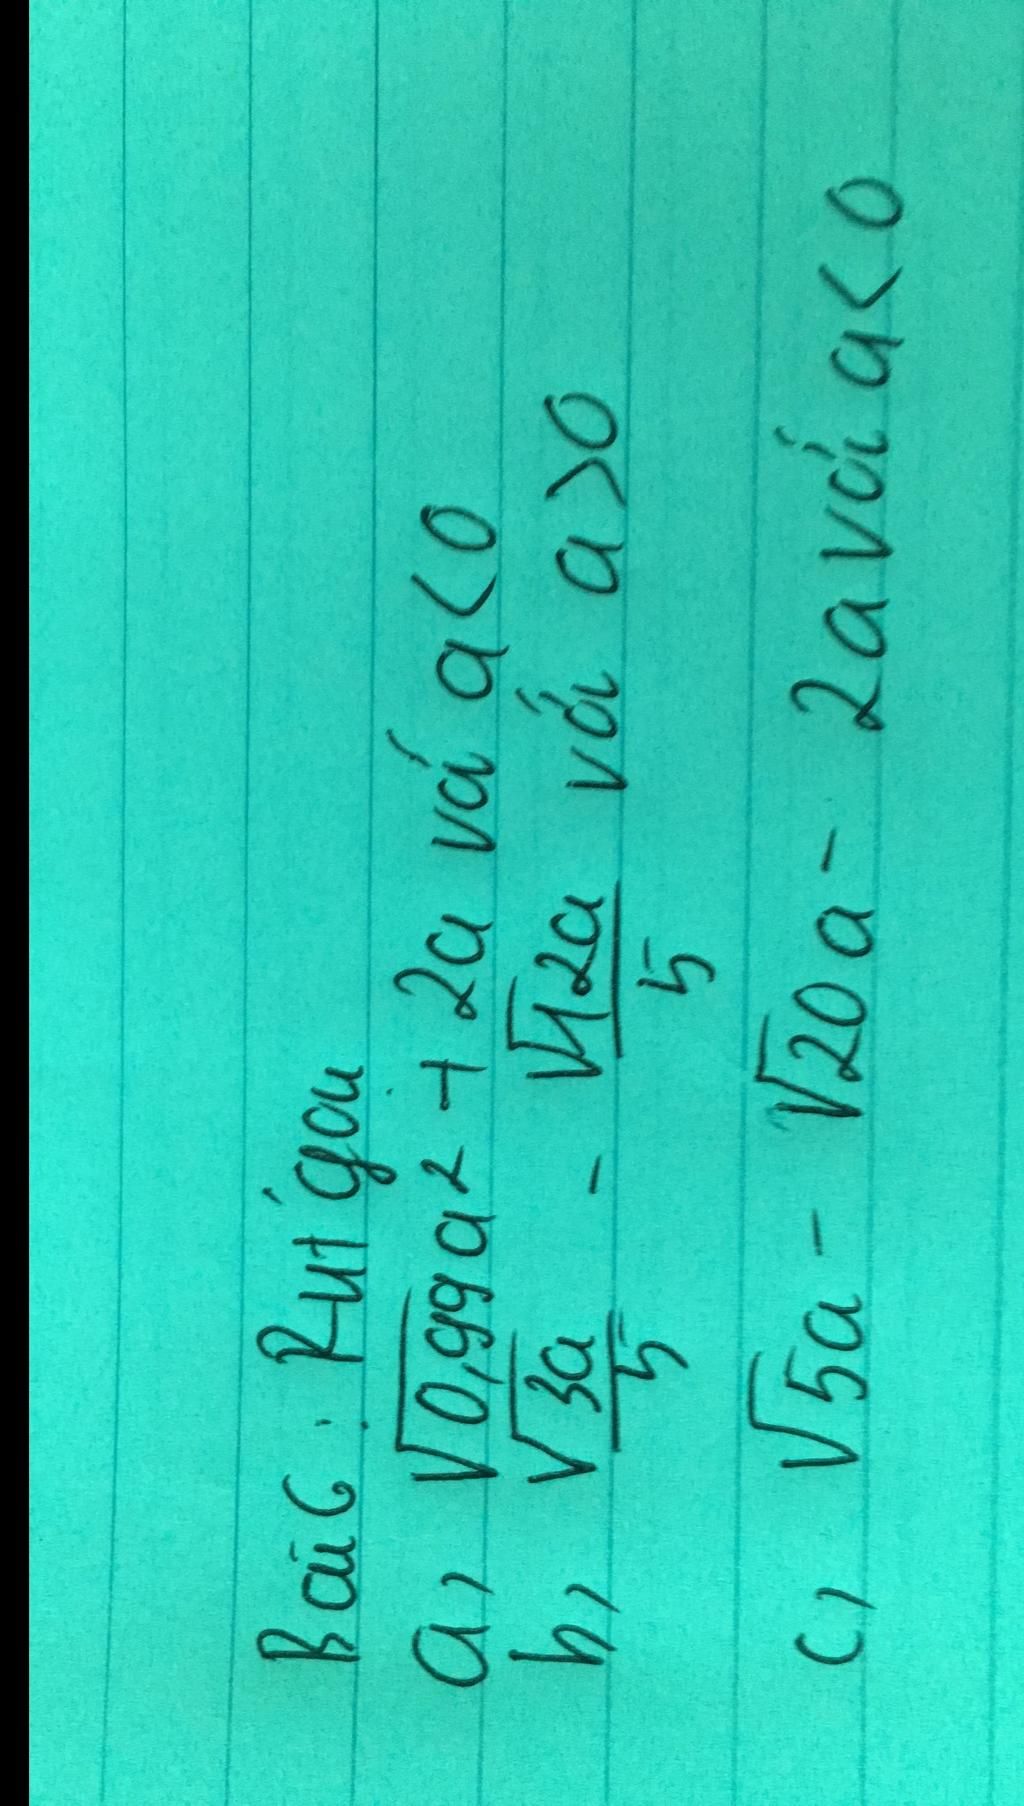 Bài 6: Rút gọn
a, √0,99a² + 2a vá a<0
b, √3a/5 - √12a/5 với a>0
c, √5a - √20a - 2a với a<0